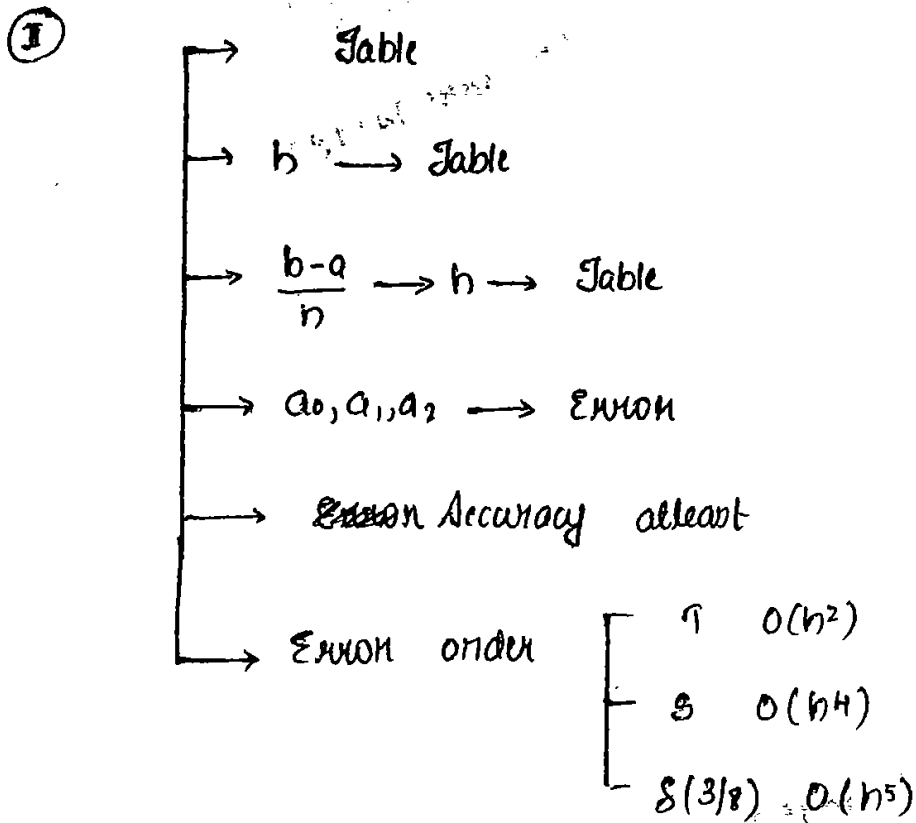 I
→ Table
h → Table
b-a/n → h → Table
a₀, a₁, a₂ → Error
Accuracy atleast
Error order
T O(h²)
S O(h⁴)
S(3/8) O(h⁵)